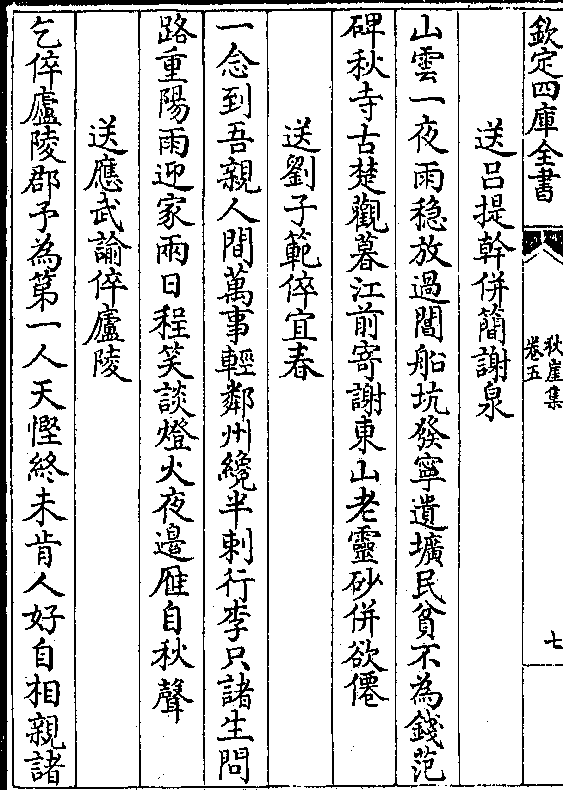 欽定四庫全書
秋崖集
卷五
七
送呂提幹併簡謝泉
山雲一夜雨穏放過閶船坑發寧遺壙民貧不為錢范
碑秋寺古楚觀暮江前寄謝東山老靈砂併欲僊
送劉子範倅宜春
一念到吾親人間萬事輕鄰州纔半刺行李只諸生問
路重陽雨迎家兩日程笑談燈火夜邉雁自秋聲
送應武諭倅廬陵
乞倅廬陵郡予為第一人天慳終未肯人好自相親諸